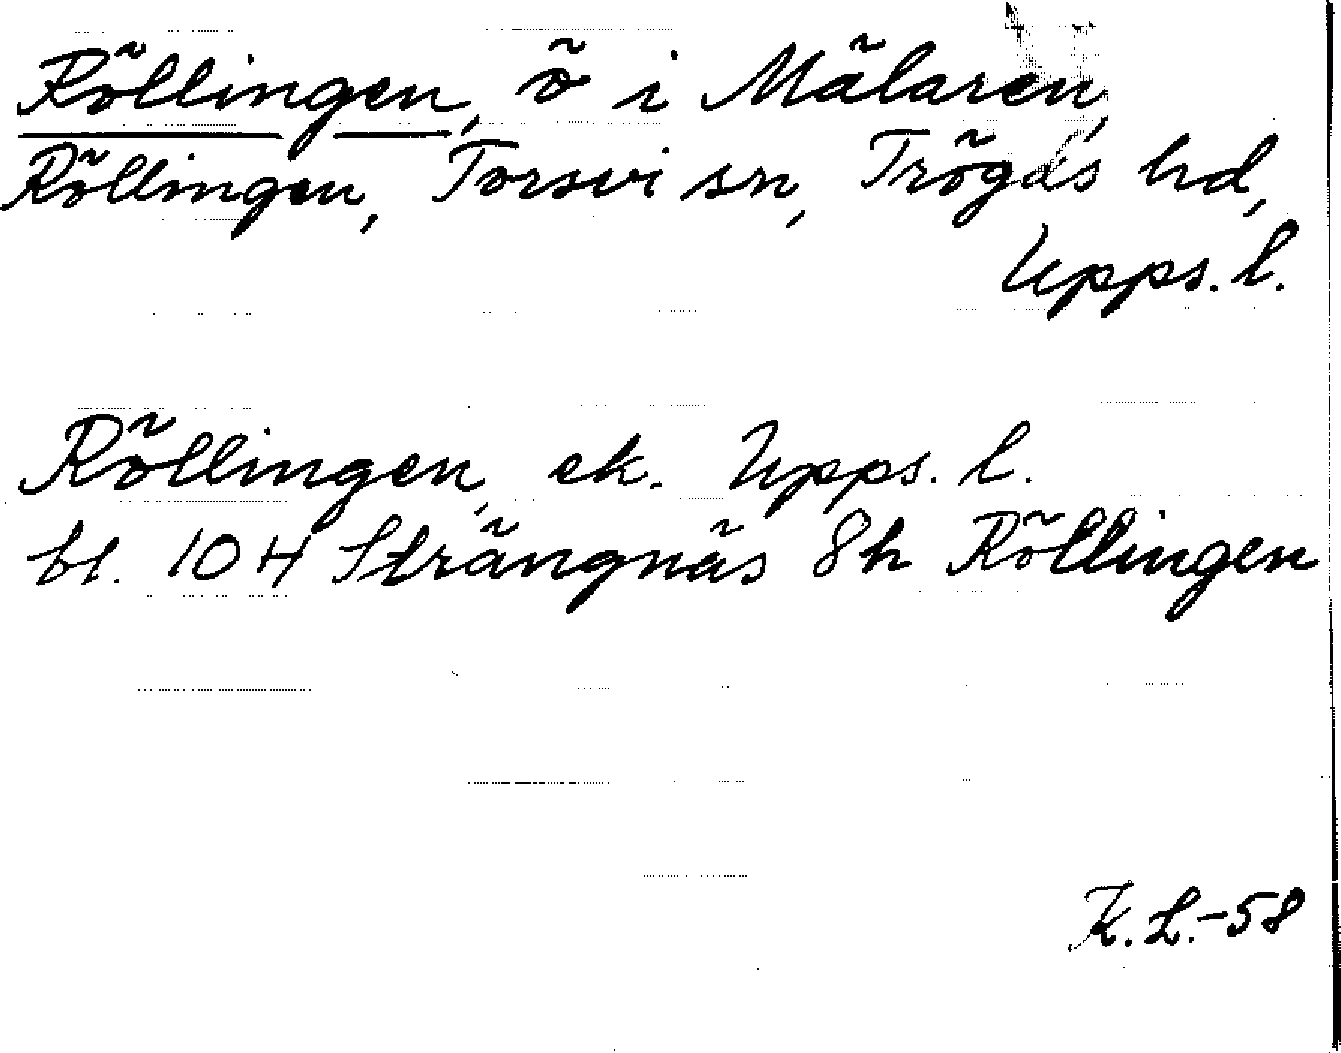 Röllingen, ö i Mälaren,
Röllingen, Torsvi sn, Trögds hd,
Upps. l.
Röllingen, ek. Upps. l.
bl. 10 H Strängnäs 8h Röllingen
K. L.-58